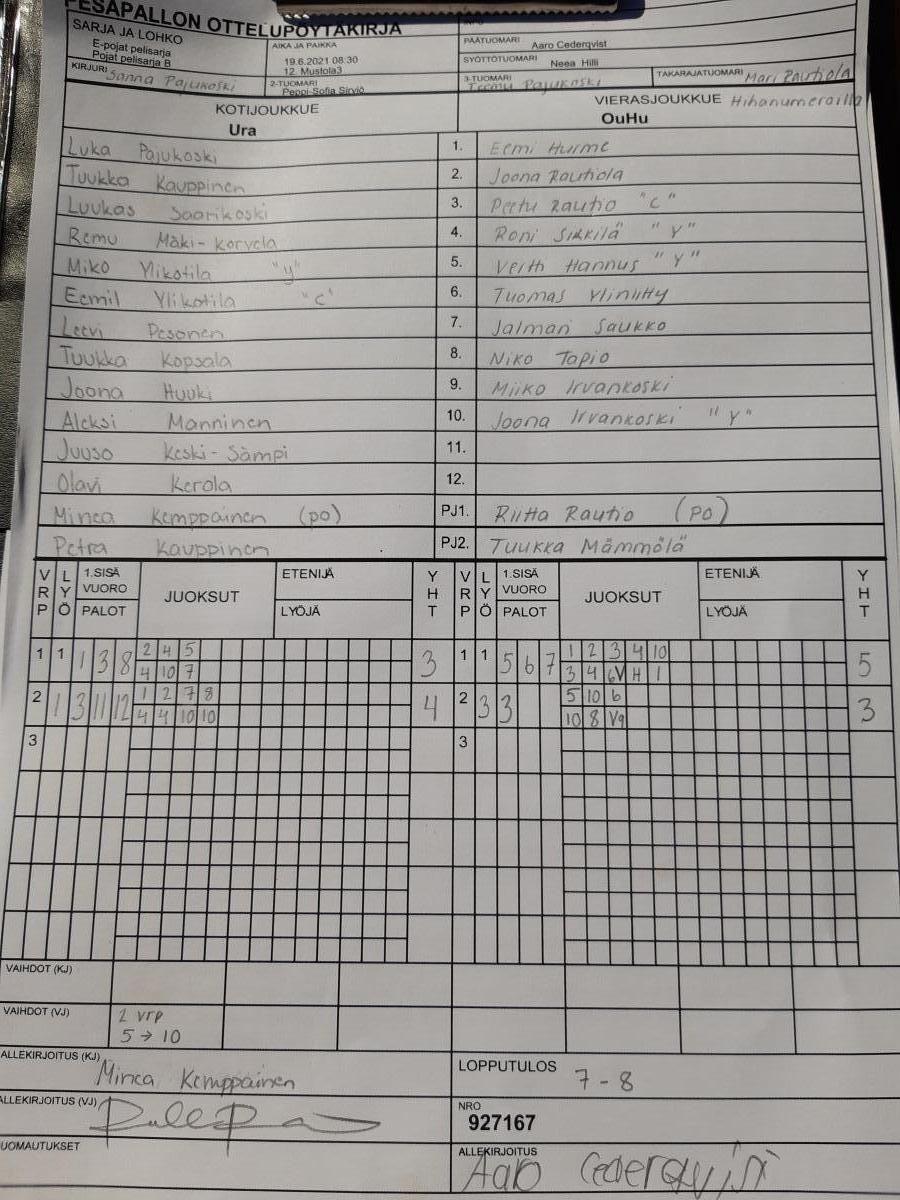 PESÄPALLON OTTELUPÖYTÄKIRJA
SARJA JA LOHKO
E-pojat pelisarja
Pojat pelisarja B
AIKA JA PAIKKA
19.6.2021 08:30
12. Mustola3
PÄÄTUOMARI Aaro Cederqvist
SYÖTTÖTUOMARI Neea Hilli
KIRJURI Sanna Pajukoski
2-TUOMARI
Peppi-Sofia Sirviö
3-TUOMARI
Teemu Pajukoski
TAKARAJATUOMARI Mari Rautiola
KOTIJOUKKUE
Ura
VIERASJOUKKUE Hihanumeroilla
OuHu
Luka Pajukoski 1. Eemi Hurme
Tuukka Kauppinen 2. Joona Rautiola
Luukas Saarikoski 3. Peetu Rautio "C"
Remu Mäki-Korvela 4. Roni Sikkilä "Y"
Miko Ylikotila "y" 5. Hannus "Y"
Eemil Ylikotila "C" 6. Tuomas Yliniitty
Leevi Pesonen 7. Jalmari Saukko
Tuukka Kopsala 8. Niko Tapio
Joona Huuki 9. Miiko Irvankoski
Aleksi Manninen 10. Joona Irvankoski "Y"
Juuso Keski-Sämpi 11.
Olavi Kerola 12.
Minea Kemppainen (po) PJ1. Riitta Rautio (PO)
Petra Kauppinen PJ2. Tuukka Mämmölä
VRP LYÖ 1.SISÄ VUORO PALOT JUOKSUT ETENIJÄ LYÖJÄ YHT VRP LYÖ 1.SISÄ VUORO PALOT JUOKSUT ETENIJÄ LYÖJÄ YHT
1 1 1 3 8 2 4 5 3 1 1 5 6 7 1 2 3 4 10 5
4 10 7 3 4 6V H 1
2 1 3 11 12 1 2 7 8 4 2 3 3 5 10 6 3
4 4 10 10 10 8 V9
3 3
VAIHDOT (KJ)
VAIHDOT (VJ) 2 vrp
5 → 10
ALLEKIRJOITUS (KJ) Minea Kemppainen
LOPPUTULOS 7 - 8
ALLEKIRJOITUS (VJ)
NRO
927167
HUOMAUTUKSET
ALLEKIRJOITUS
Aaro Cederqvist